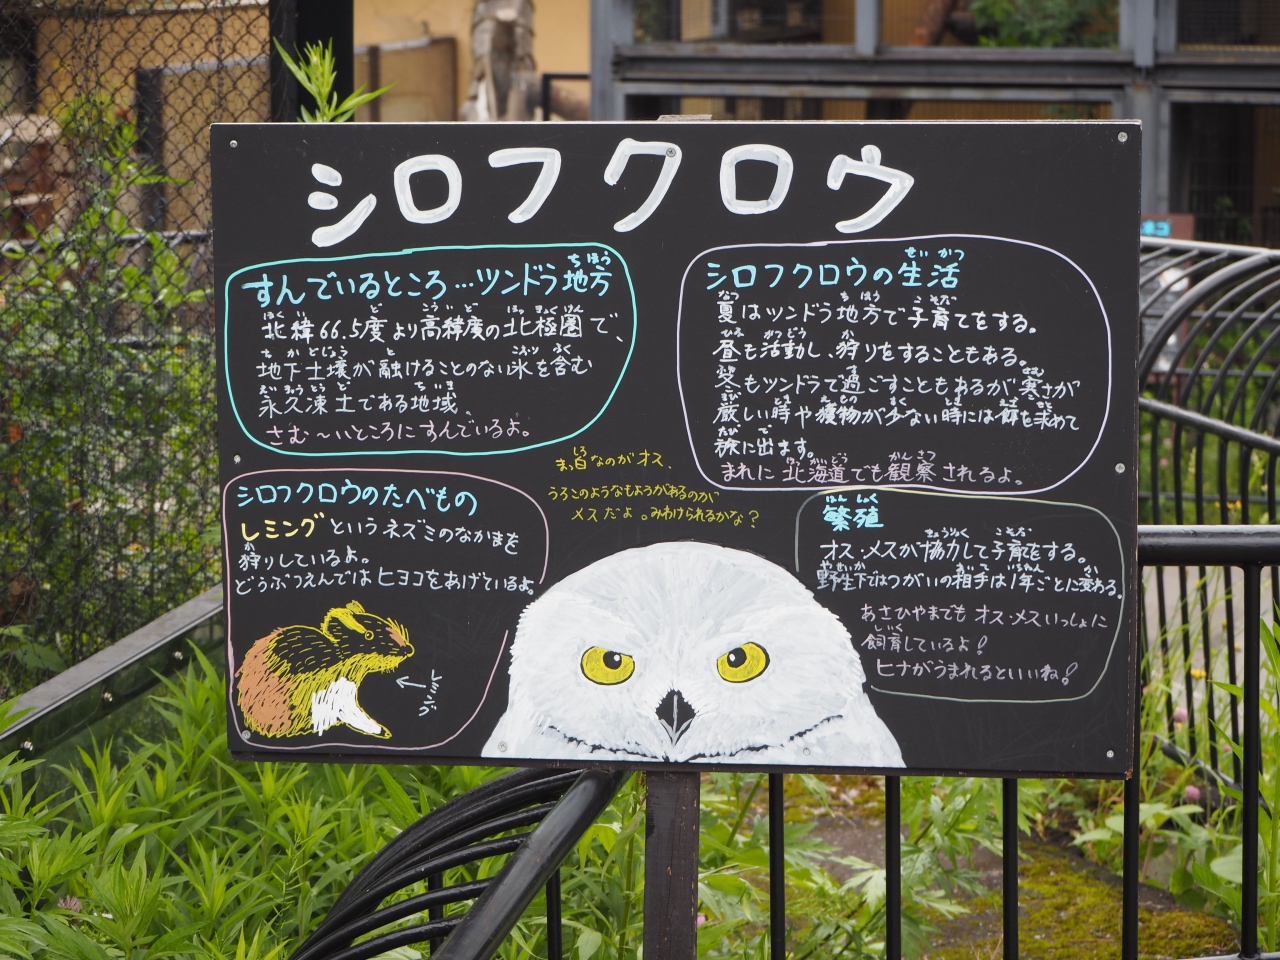 シロフクロウ
すんでいるところ…ツンドラ地方
北緯66.5度より高緯度の北極圏で、
地下土壌が融けることのない氷を含む
永久凍土である地域、
さむ〜いところにすんでいるよ。
シロフクロウの生活
夏はツンドラ地方で子育てをする。
昼も活動し、狩りをすることもある。
冬もツンドラで過ごすこともあるが寒さが
厳しい時や獲物が少ない時には餌を求めて
旅に出ます。
まれに北海道でも観察されるよ。
まっ白なのがオス、
うろこのようなもようがあるのが
メスだよ。みわけられるかな？
シロフクロウのたべもの
レミングというネズミのなかまを
狩りしているよ。
どうぶつえんではヒヨコをあげているよ。
レミング
繁殖
オス・メスが協力して子育をする。
野生下ではつがいの相手は1年ごとに変わる。
あさひやまでもオス・メスいっしょに
飼育しているよ！
ヒナがうまれるといいね！